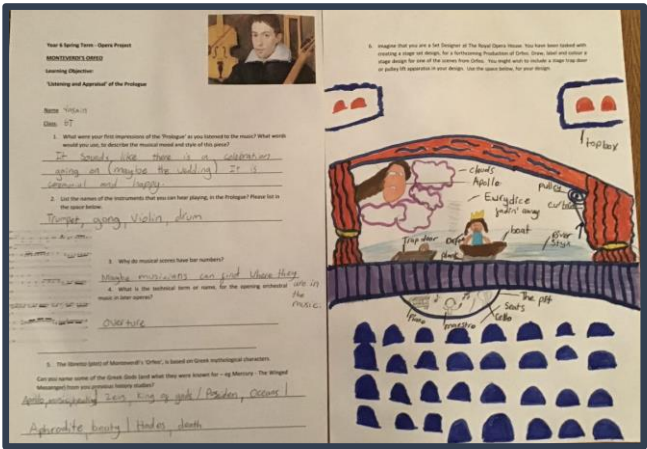 Year 6 Spring Term - Opera Project
MONTEVERDI'S ORFEO
Learning Objective:
'Listening and Appraisal' of the Prologue
Name
Class 6T
1. What were your first impressions of the 'Prologue' as you listened to the music? What words
would you use, to describe the musical mood and style of this piece?
It sounds like there is a celebration
going on (maybe the wedding) It is
and happy.
2. List the names of the instruments that you can hear playing, in the Prologue? Please list in
the space below.
Trumpet, gong, Violin, drum
3. Why do musical scores have bar numbers?
Maybe musicians can find where they
are in
the
music.
4. What is the technical term or name, for the opening orchestral
music in later operas?
Overture
5. The libretto (plot) of Monteverdi's 'Orfeo', is based on Greek mythological characters.
Can you name some of the Greek Gods (and what they were known for - eg Mercury - The Winged
Messenger) from your previous history studies?
Apollo, music, healing / Zeus, King of gods / Poseiden, Oceans /
Aphrodite, beauty / Hades, death
6. Imagine that you are a Set Designer at The Royal Opera House. You have been tasked with
creating a stage set design, for a forthcoming Production of Orfeo. Draw, label and colour a
stage design for one of the scenes from Orfeo. You might wish to include a stage trap door
or pulley lift apparatus in your design. Use the space below, for your design.
top box
clouds
Apollo
pulley
Eurydice
fadin' away
boat
River
Styx
Trap door
The pit
seats
Cello
maestro